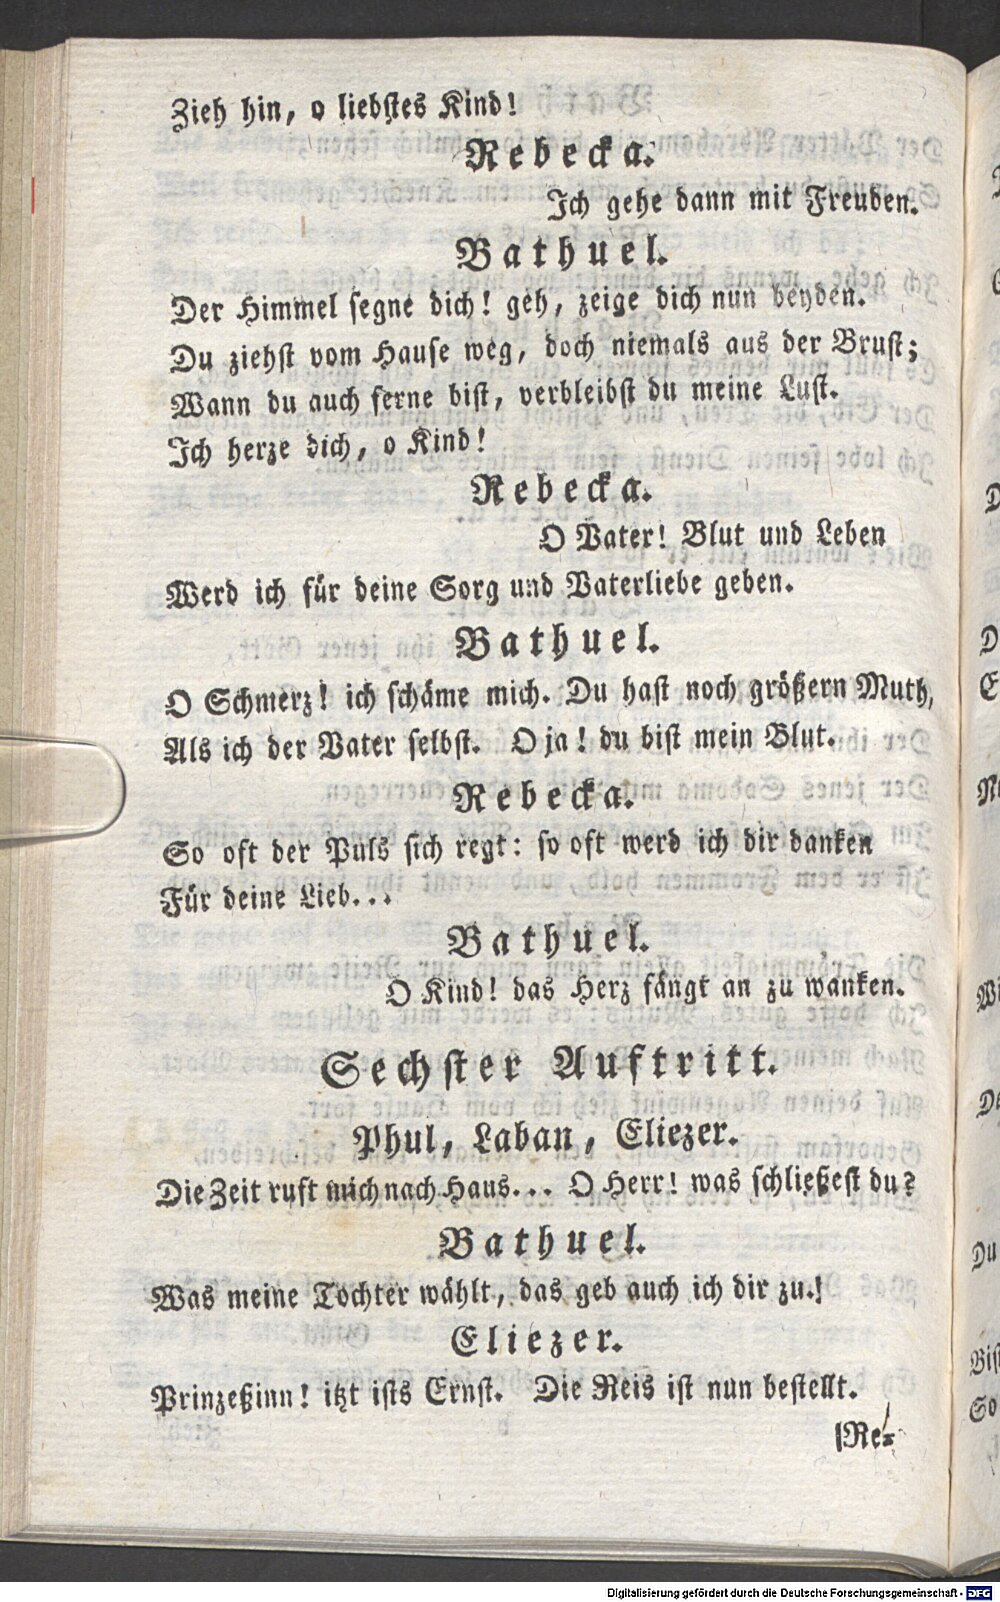 Zieh hin, o liebstes Kind!
Rebecka.
Ich gehe dann mit Freuden.
Bathuel.
Der Himmel segne dich! geh, zeige dich nun beyden.
Du ziehst vom Hause weg, doch niemals aus der Brust;
Wann du auch ferne bist, verbleibst du meine Lust.
Ich herze dich, o Kind!
Rebecka.
O Vater! Blut und Leben
Werd ich für deine Sorg und Vaterliebe geben.
Bathuel.
O Schmerz! ich schäme mich. Du hast noch größern Muth,
Als ich der Vater selbst. O ja! du bist mein Blut.
Rebecka.
So oft der Puls sich regt: so oft werd ich dir danken
Für deine Lieb...
Bathuel.
O Kind! das Herz fängt an zu wanken.
Sechster Auftritt.
Phul, Laban, Eliezer.
Die Zeit ruft mich nach Haus... O Herr! was schließest du?
Bathuel.
Was meine Tochter wählt, das geb auch ich dir zu.!
Eliezer.
Prinzeßinn! itzt ists Ernst. Die Reis ist nun bestellt.
Re-
Digitalisierung gefördert durch die Deutsche Forschungsgemeinschaft - DFG